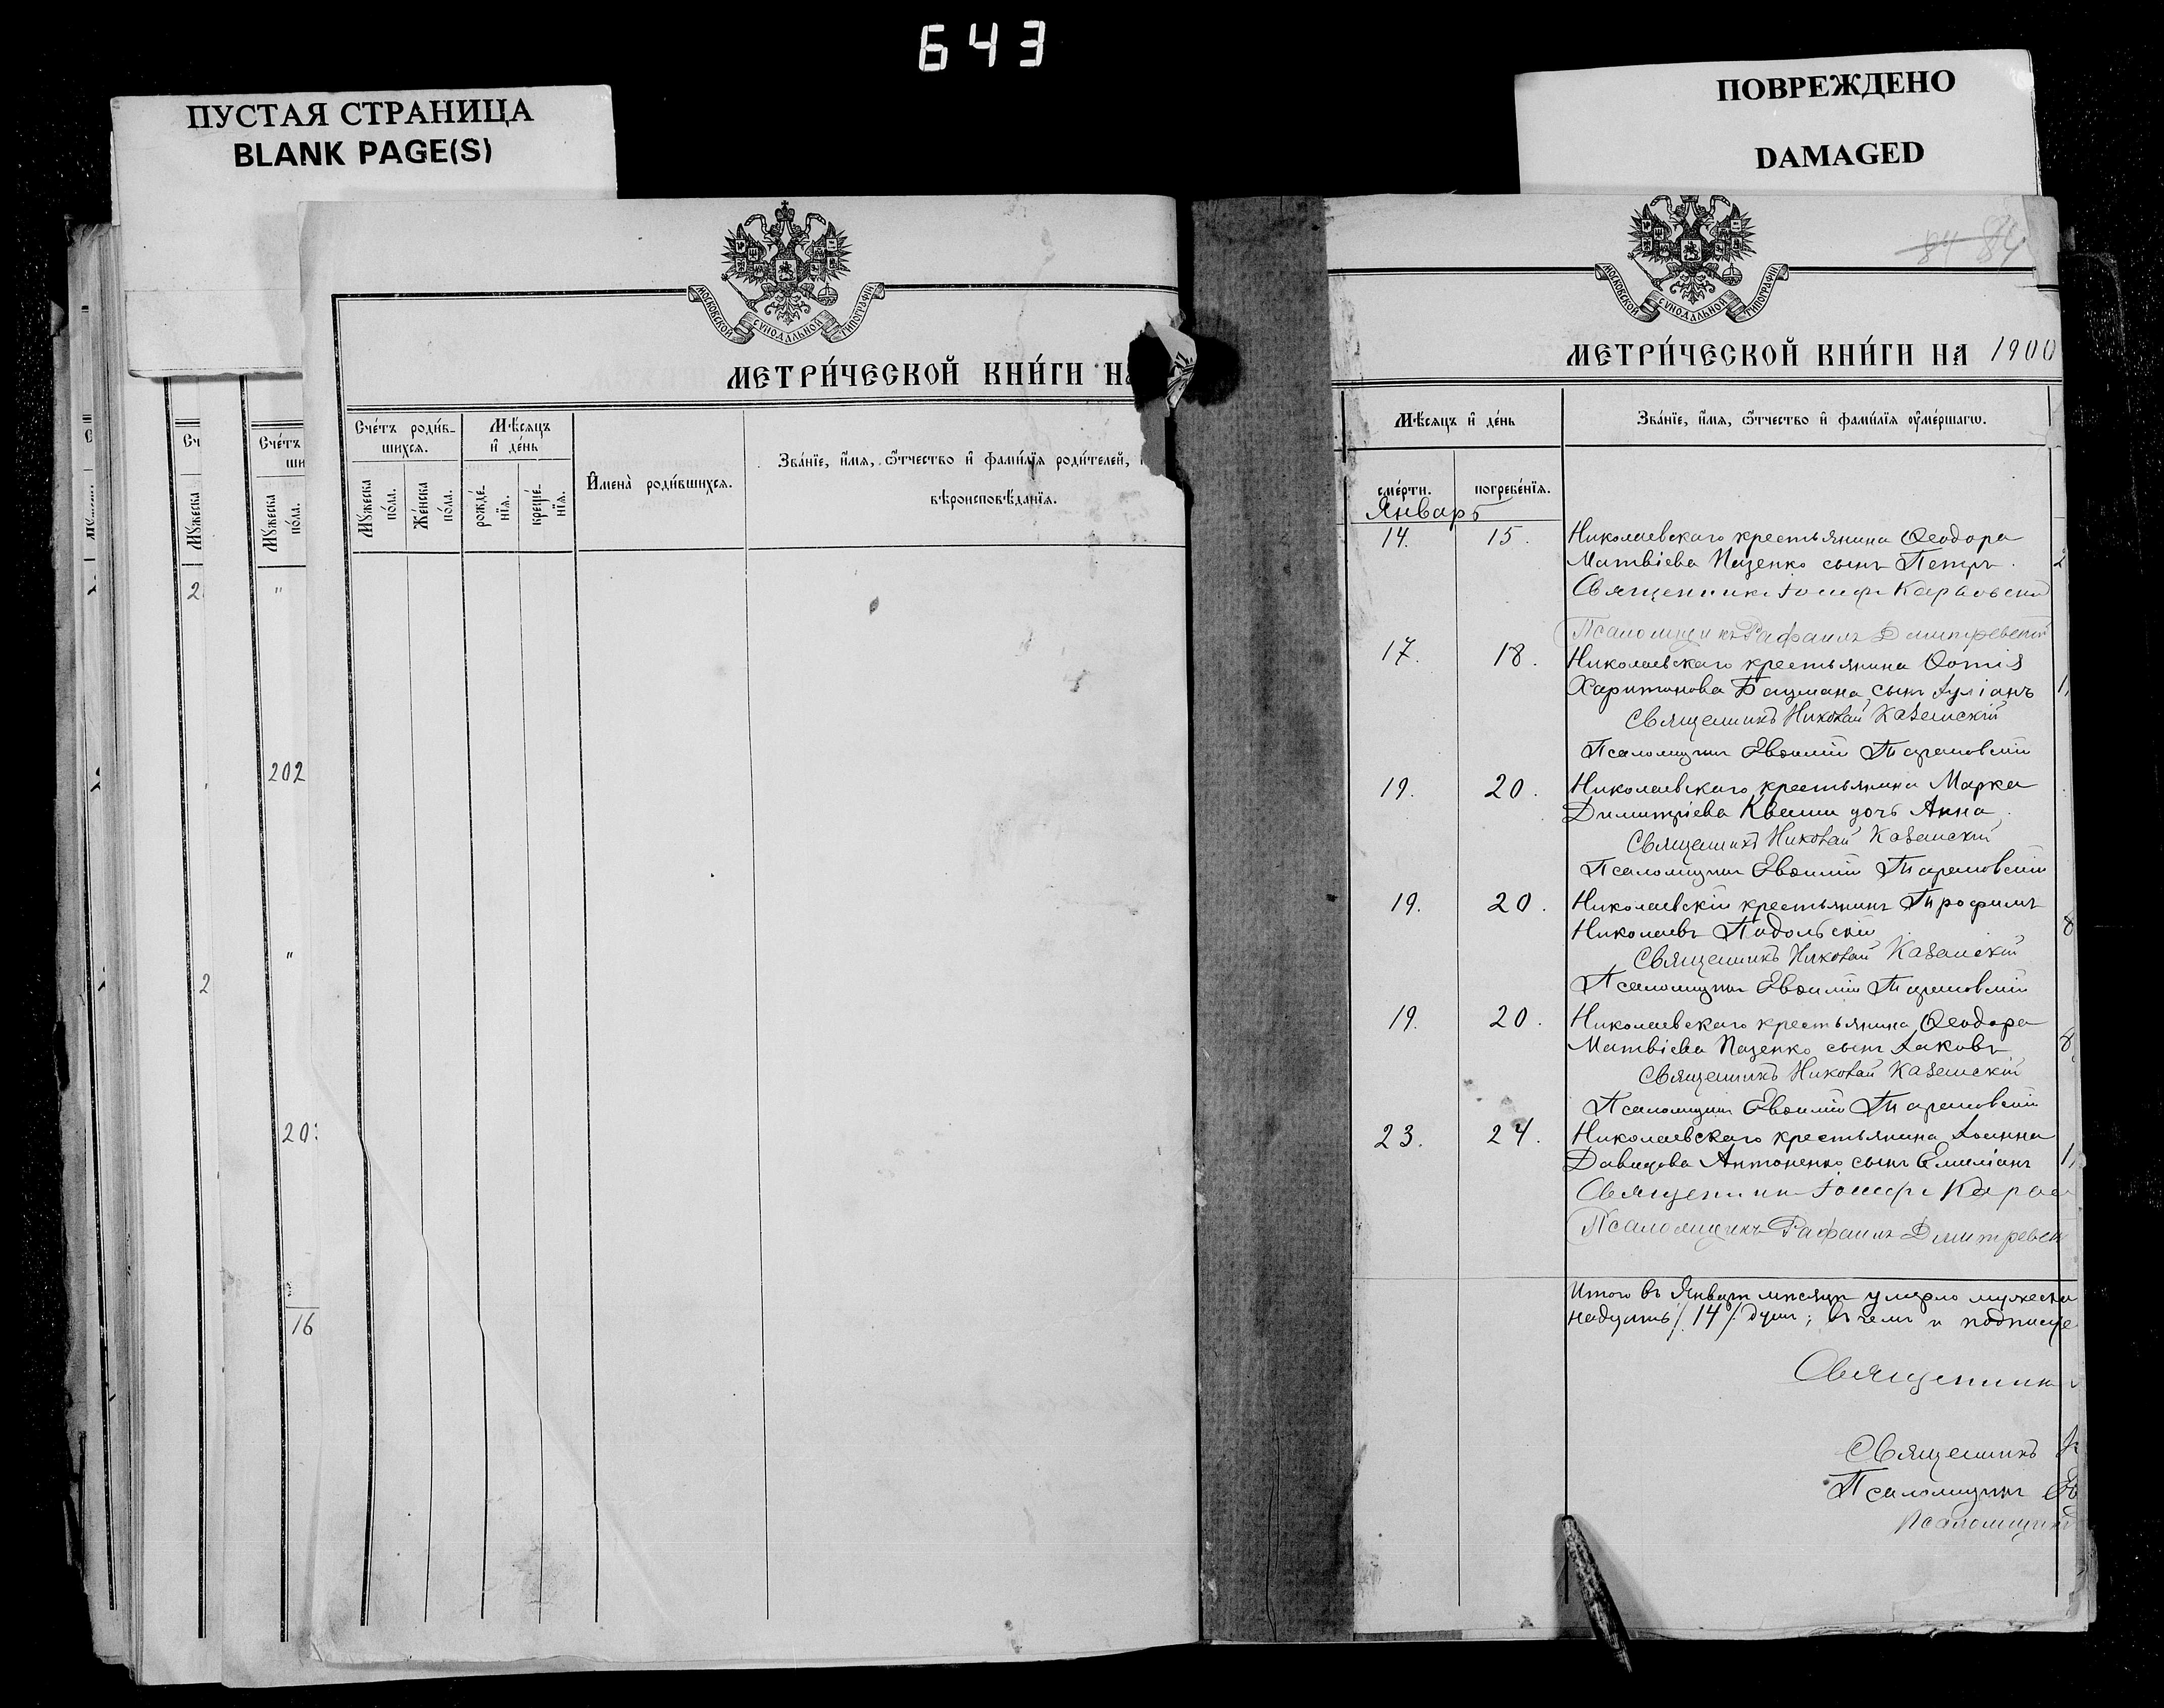 643
ПУСТАЯ СТРАНИЦА
BLANK PAGE(S)
ПОВРЕЖДЕНО
DAMAGED
МОСКОВСКОЙ СѴНОДАЛЬНОЙ ТИПОГРАФІИ
МЕТРИ́ЧЕСКОЙ КНИ́ГИ НА
Сче́тъ роди́в-
шихся.
Мѣ́сяцъ
и҆ де́нь
Мꙋ́жеска
по́ла.
Же́нска
по́ла.
рожде́-
нїя.
креще́-
нїя.
И҆мена̀ роди́вшихся.
Зва́нїе, и҆́мя, ѻ҆́тчество и҆ фами́лїя роди́телей,
вѣроисповѣ́данїя.
Сч
Сче́тъ
ши
Мꙋ́жеска
Мꙋ́жеска
по́ла.
2
"
202
"
2
16
МОСКОВСКОЙ СѴНОДАЛЬНОЙ ТИПОГРАФІИ
84 84
МЕТРИ́ЧЕСКОЙ КНИ́ГИ НА 1900
Мѣ́сяцъ и҆ де́нь
Зва́нїе, и҆́мя, ѻ҆́тчество и҆ фами́лїя ᲂу҆ме́ршагѡ.
сме́рти.
погребе́нїя.
Январь
14. 15. Николаевскаго крестьянина Ѳеодора
Матвіева Паценко сынъ Петръ.
Священникъ Іосифъ
Псаломщикъ Рафаилъ Дмитревскій
17. 18. Николаевскаго крестьянина Ѳотія
Харитонова Бацмана сынъ Іуліанъ
Священникъ Николай Казанскій
Псаломщикъ Евѳимій Тарановскій
19. 20. Николаевскаго крестьянина Марка
Димитріева Кваши дочь Анна
Священникъ Николай Казанскій
Псаломщикъ Евѳимій Тарановскій
19. 20. Николаевскій крестьянинъ Трофимъ
Николаевъ Подольскій
Священникъ Николай Казанскій
Псаломщикъ Евѳимій Тарановскій
19. 20. Николаевскаго крестьянина Ѳеодора
Матвіева Паценко сынъ Іаковъ
Священникъ Николай Казанскій
Псаломщикъ Евѳимій Тарановскій
23. 24. Николаевскаго крестьянина Іоанна
Давидова Антоненко сынъ Емиліанъ
Священникъ Іосифъ
Псаломщикъ Рафаилъ Дмитревск
Итого въ Январѣ мѣсяцѣ умерло мужеска
надцать /14/ душъ; въ чемъ и подписуе
Священникъ
Священникъ
Псаломщикъ
Псаломщикъ